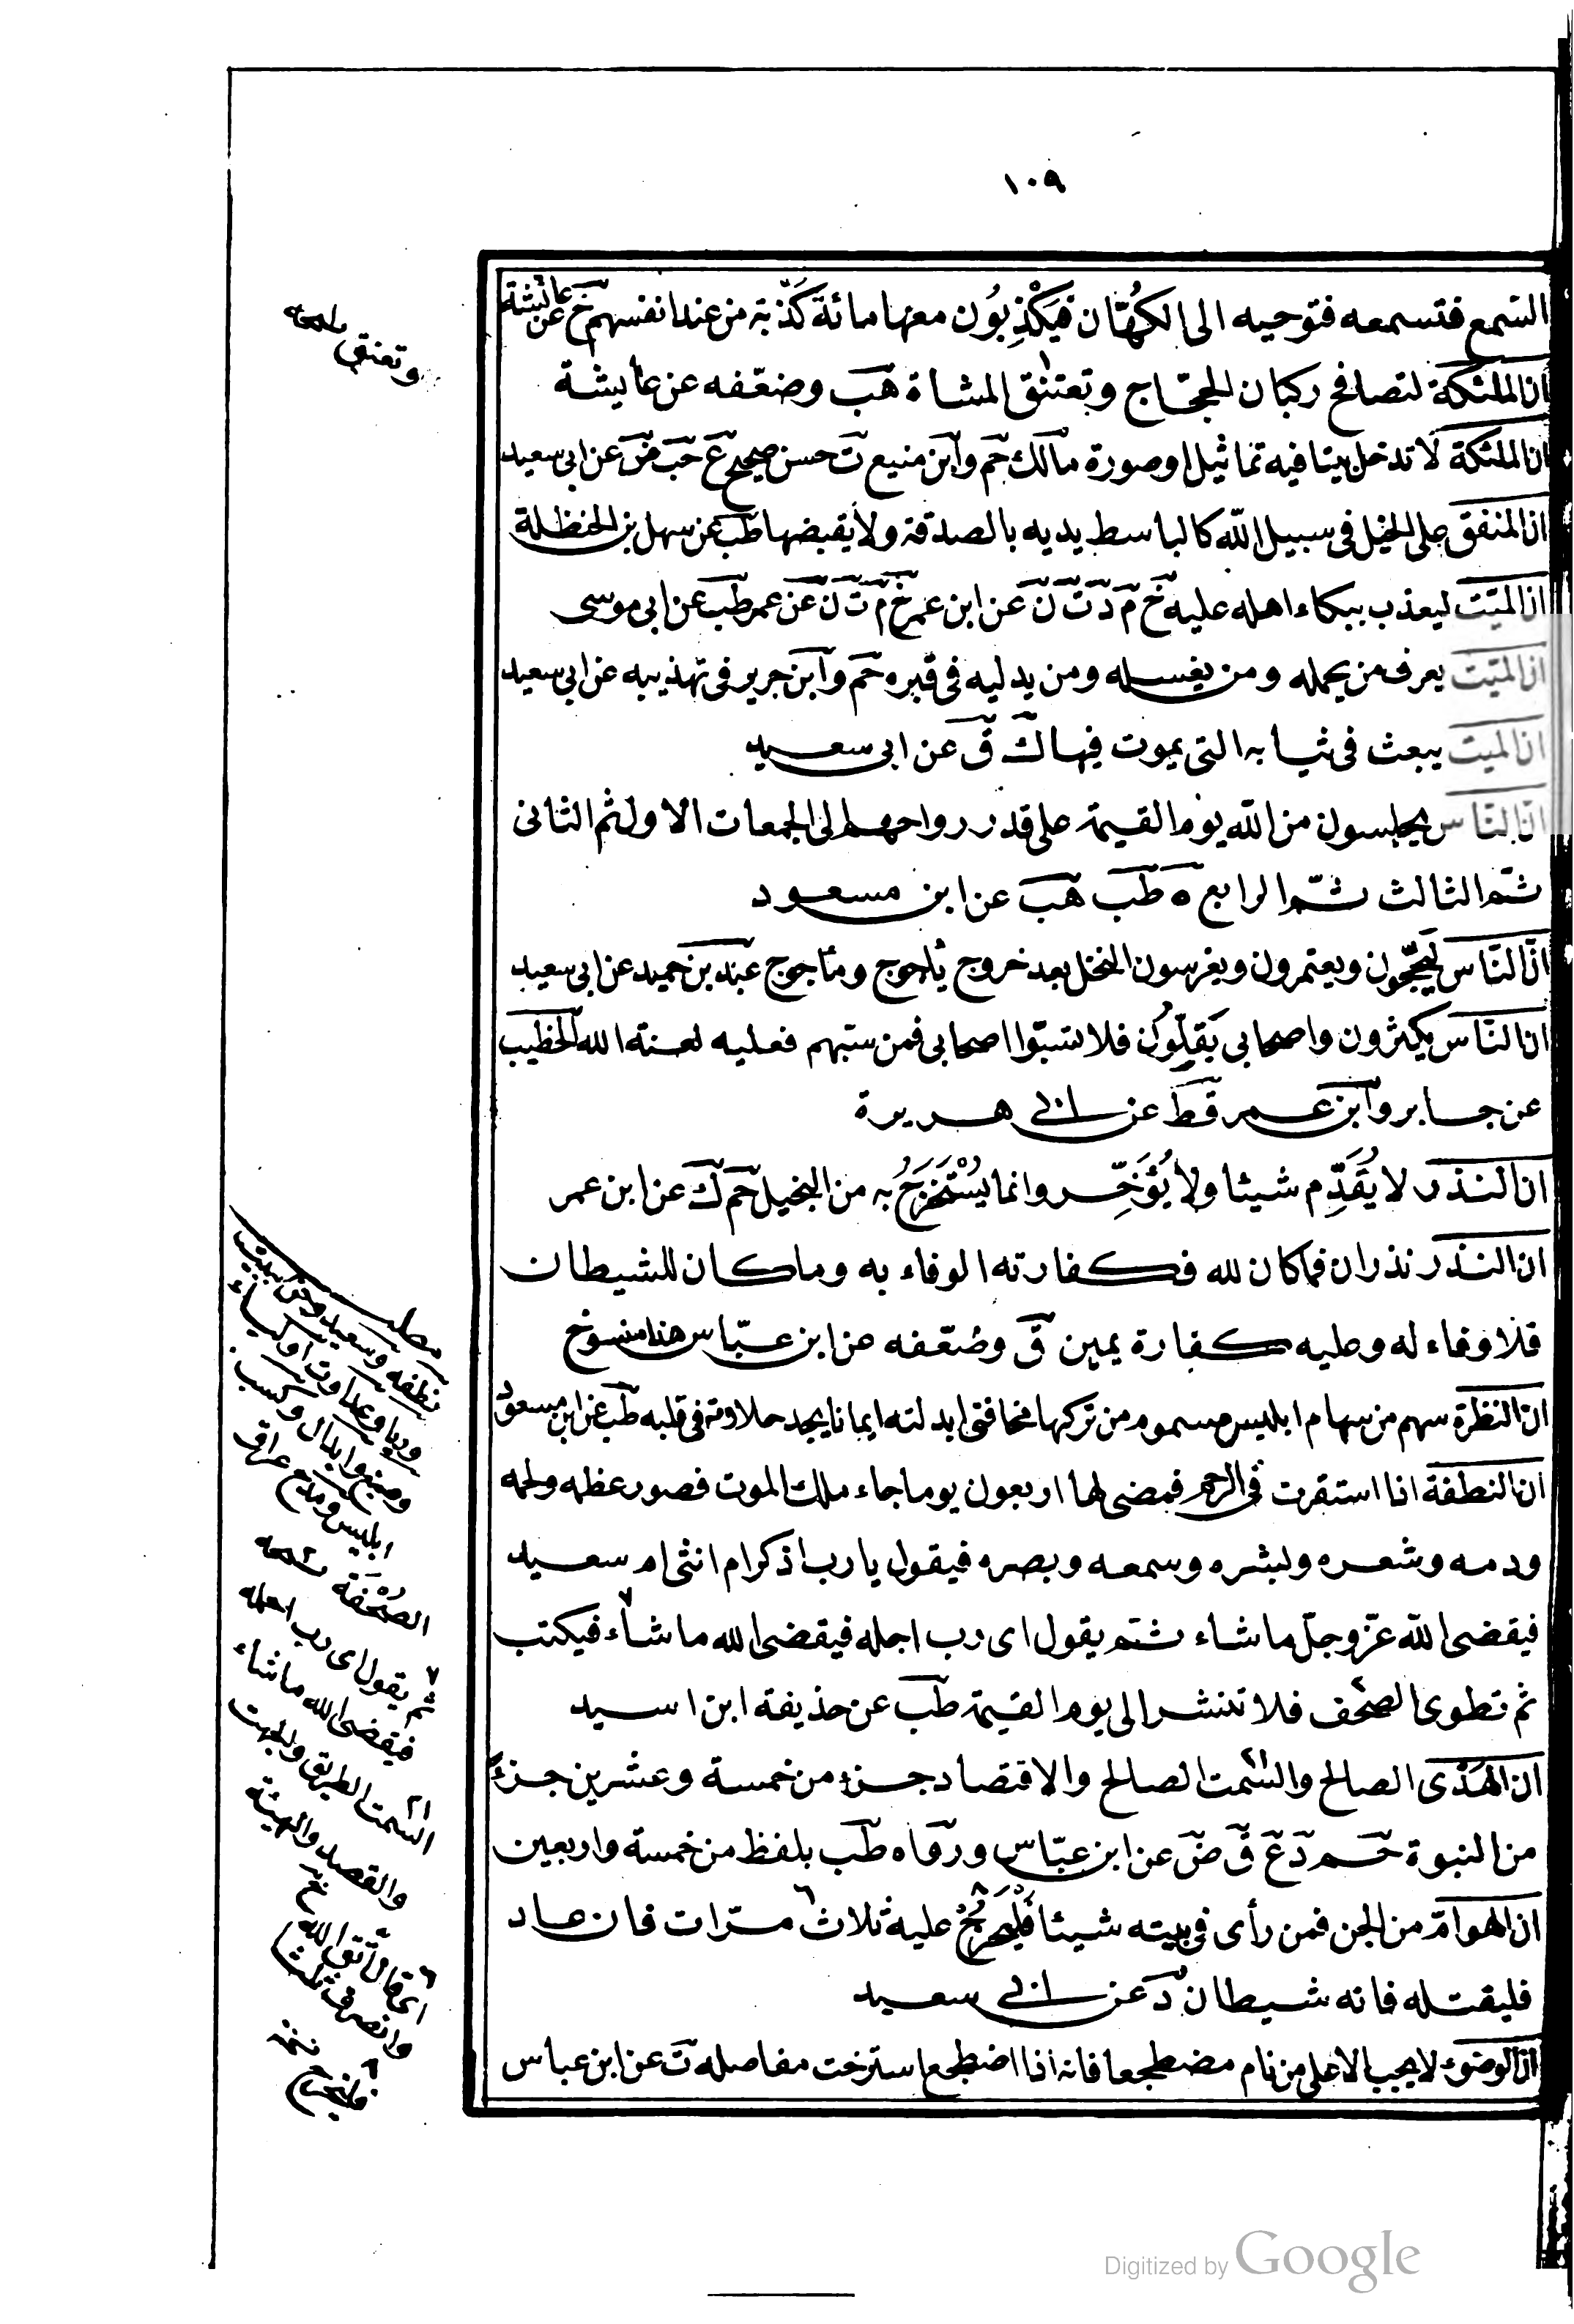 ١٠٩
السّمع فتسمعه فتوحيه الى الكهّان فيَكْذِبُون معها مائة كَذْبة من عند انفسهم خ عن عائشة
ان الملئكة لتصافح ركبان الحجّاج وتعتنق المشاة هب وضعّفه عن عايشة
ان الملئكة لا تدخل بيتا فيه تماثيل اوصورة مالك حم وابن منيع ت حسن صحيح ع حب ض عن ابى سعيد
ان المنفق على الخيل فى سبيل الله كالباسط يديه بالصدقة ولا يقبضها طب عن سهل بن الحنظلة
ان الميّت ليعذب ببكاء اهله عليه خ م د ت ن عن ابن عمر خ م ت ن عن عمر طب عن ابى موسى
ان الميّت يعرف من يحمله ومن يغسله ومن يدليه فى قبره حم وابن جرير فى تهذيبه عن ابى سعيد
ان الميت يبعث فى ثيابه التى يموت فيها ك ق عن ابى سعيد
انّ النّاس يجلسون من الله يوم القيمة على قدر رواحهم الى الجمعات الاول ثم الثانى
ثمّ الثالث ثمّ الرابع ه طب هب عن ابن مسعود
انّ النّاس ليحجّون ويعتمرون ويغرسون النخل بعد خروج يأجوج ومأجوج عبد بن حميد عن ابى سعيد
ان النّاس يكثرون واصحابى يَقِلّون فلا تسبّوا اصحابى فمن سبّهم فعليه لعنة الله الخطيب
عن جابر وابن عمر قط عن ابى هريرة
ان النذر لا يُقَدِّم شيئا ولا يُؤَخِّر وانما يُسْتَخْرَجُ به من البخيل حم ك عن ابن عمر
ان النذر نذران فما كان لله فكفارته الوفاء به وما كان للشيطان
فلا وفاء له وعليه كفارة يمين ق وضعّفه عن ابن عبّاس هذا منسوخ
ان النظرة سهم من سهام ابليس مسموم من تركها مخافتى ابدلته ايمانا يجد حلاوته فى قلبه طب عن ابن مسعود
ان النطفة اذا استقرت فى الرحم فمضى لها اربعون يوما جاء ملك الموت فصور عظمه ولحمه
ودمه وشعره وبشره وسمعه وبصره فيقول يا رب اذكر ام انثى ام سعيد
فيقضى الله عزّ وجلّ ما شاء ثمّ يقول اى رب اجله فيقضى الله ما شاء٧ فيكتب
ثم تطوى الصحف فلا تنشر الى يوم القيمة طب عن حذيفة ابن اسيد
ان الهَدْى الصالح والسّمت الصالح والاقتصاد جزء من خمسة وعشرين جزءً
من النبوة حم د ع ق ض عن ابن عبّاس ورواه طب بلفظ من خمسة واربعين
ان الهوامّ من الجن فمن رأى فى بيته شيئا فليحرّج٨ عليه ثلاث٦ مرّات فان عاد
فليقتله فانه شيطان د عن ابى سعيد
ان الوضوء لا يجب الا على من نام مضطجعا فانه اذا اضطجع استرخت مفاصله ت عن ابن عباس
وتعتنق نسخه
مطلب
نطفه وسعيد
ابليس ومديح عراق
الصُحْفَة نسخه
٧ ثم يقول اى رب اجله
فيقضى الله ما شاء
السّمت الطريق والجهت
والقصد والهيئة
٦ اى قال اتق الله
وانصرف ثلثا
٨ فليحرج نسخه
Digitized by Google